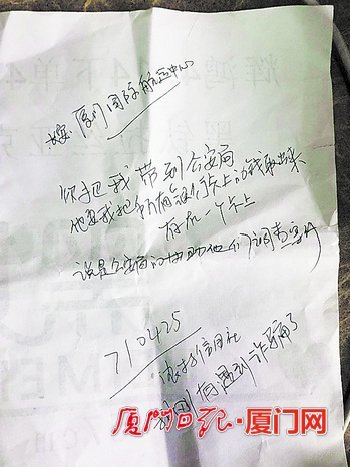 厦门国际航运中心
你把我带到公安局
他要我把所有银行卡上的钱取出来
存在一个卡上
说是公安局的协助他们调查案件
710425
农村信用社
遇到诈骗了
厦门日报·厦门网